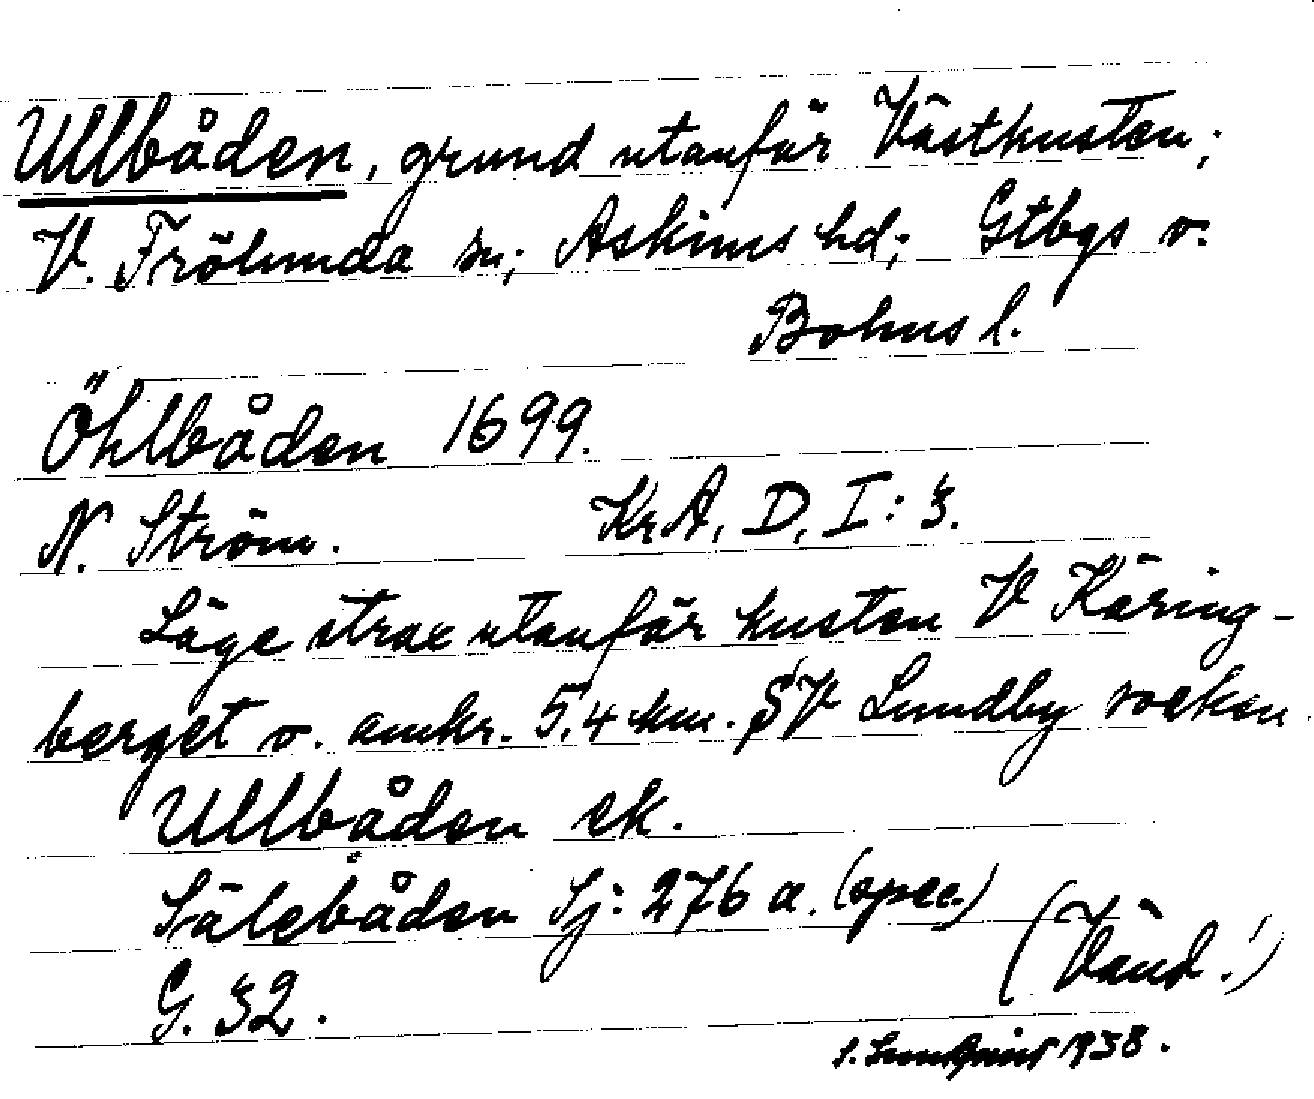 Ullbåden, grund utanför Västkusten;
V. Frölunda sn; Askims hd; Gtbgs o.
Bohus l.
Öhlbåden 1699.
N. Ström. KrA, D, I: 3.
Läge strax utanför kusten V Käring-
berget o. omkr. 5,4 km. SV Lundby socken.
Ullbåden ek.
Sälebåden Sj: 276 a. (spec.)
G. 32. (Vänd!)
1938.